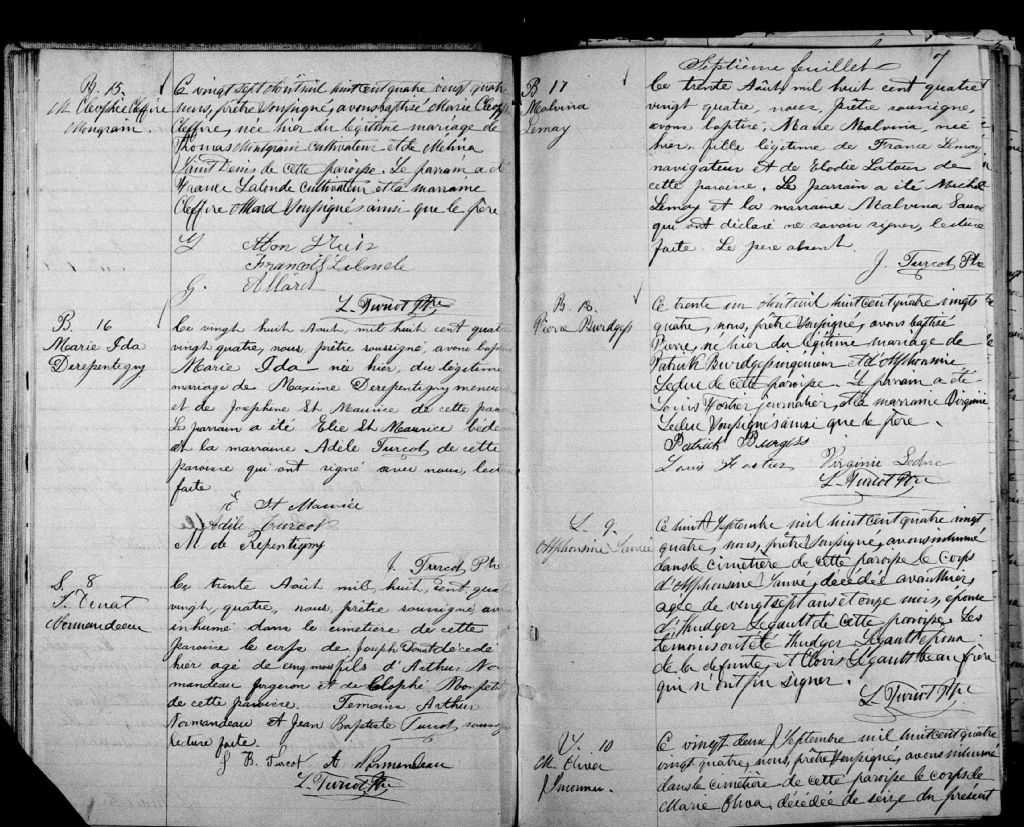 B. 15.
M. Cléophée Cléffire
Mongrain
Ce vingt sept août mil huit cent quatre vingt quatre
nous, prêtre soussigné, avons baptisé Marie
Cléffire, née hier du légitime mariage de
Thomas Montgrain cultivateur et de Mélina
Saint Denis de cette paroisse. Le parrain a été
France Lalonde cultivateur et la marraine
Cléffire Allard soussignés ainsi que le père
François Lalonde
Allard
L. Turcot Ptre
B. 16
Marie Ida
Derepentigny
Ce vingt huit Août, mil huit cent quat
vingt quatre, nous, prêtre soussigné, avons bap
Marie Ida née hier, du légitime
mariage de Maxime Derepentigny menui
et de Josephine St Maurice de cette par
Le parrain a été Elie St Maurice bède
et la marraine Adèle Turcot de cette
paroisse qui ont signé avec nous, lect
faite.
E St Maurice
Adèle Turcot
M de Repentigny
J. Turcot Ptre
S. 8
Normandeau
Ce trente Août mil, huit, cent, qua
vingt, quatre, nous, prêtre soussigné, av
inhumé dans le cimetière de cette
paroisse le corps de Joseph décédé
hier agé de cinq mois fils d'Arthur No-
mandeau forgeron et de Clophé Monpet
de cette paroisse. Temoins Arthur
Normandeau et Jean Baptiste Turcot, sous
lecture faite.
J B. Turcot A Normandeau
L. Turcot Ptre
Septième feuillet 7
B 17
Malvina
Lemay
Ce trente Août mil huit cent quatre
vingt quatre, nous, prêtre soussigné,
avons baptisé, Marie Malvina, née
hier, fille légitime de France Lemay
navigateur et de Elodie Latour de
cette paroisse. Le parrain a été Michel
Lemay et la marraine Malvina Sauvé
qui ont déclaré ne savoir signer, lecture
faite. Le pere absent.
J. Turcot Ptre
B. 18.
Pierre Burdgess
Ce trente un août mil huit cent quatre vingt
quatre, nous, prêtre soussigné, avons baptisé
Pierre, né hier du légitime mariage de
Patrick Burdgess ingénieur et d'Alphonsine
Leduc de cette paroisse. Le parrain a été
Louis Fortier journalier, et la marraine Virginie
Leduc soussignés ainsi que le père.
Patrick Burgess
Louis Fortier Virginie Leduc
L. Turcot Ptre
S. 9.
Alphonsine Sauvé
Ce huit Septembre mil huit cent quatre vingt
quatre, nous, prêtre soussigné, avons inhumé
dans le cimetière de cette paroisse le corps
d'Alphonsine Sauvé, décédée avant hier,
agée de vingt sept ans et onze mois, épouse
d'Hudger Legault de cette paroisse. Les
témoins ont été Hudger Legault époux
de la defunte, et Clovis Legault beau frère
qui n'ont pu signer.
L. Turcot Ptre
S. 10
M. Oliva
Ce vingt deux Septembre mil huit cent quatre
vingt quatre, nous, prêtre soussigné, avons inhumé
dans le cimetière de cette paroisse le corps de
Marie Oliva, décédée de seize du présent